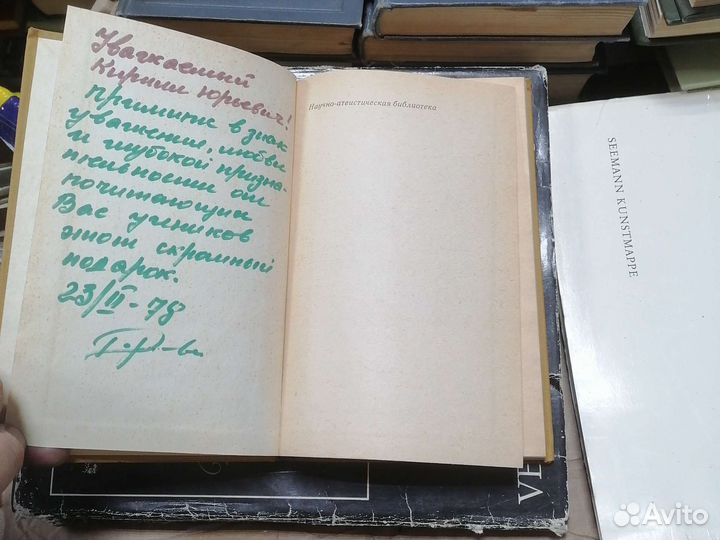 Уважаемый
Кирилл Юрьевич!
примите в знак
уважения, любви
и глубокой призна-
тельности от
почитающих
Вас учеников
этот скромный
подарок.
23/II-78
Научно-атеистическая библиотека
SEEMANN KUNSTMAPPE
VE
Avito